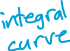 integral
curve